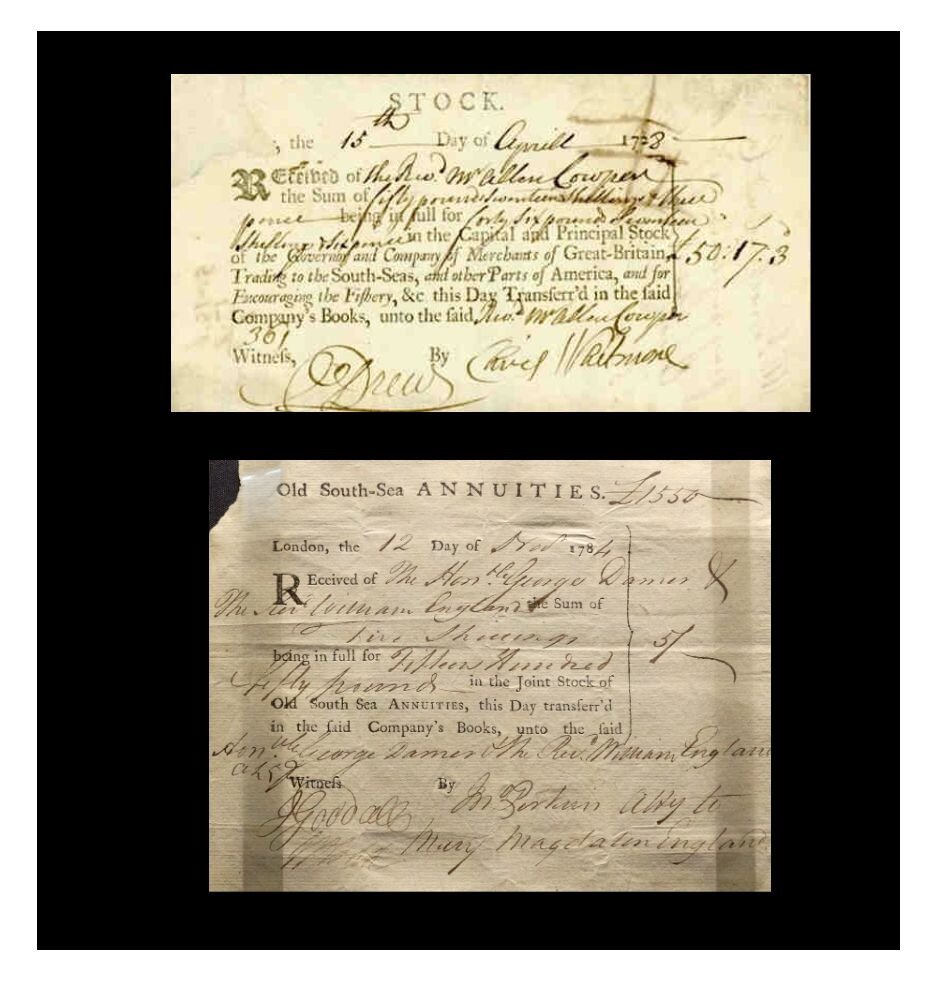 STOCK.
, the 15th Day of Aprill 1728
REceived of the Revd. Mr Allen Cowper
the Sum of fifty pounds Seventeen Shillings & three
pence being in full for forty Six pounds Seventeen
Shillings & Six pence in the Capital and Principal Stock
of the Governor and Company of Merchants of Great-Britain, £50:17:3
Trading to the South-Seas, and other Parts of America, and for
Encouraging the Fiſhery, &c this Day Transferr'd in the ſaid
Company's Books, unto the ſaid Revd. Mr Allen Cowper
361
Witneſs, By
Drew
Old South-Sea ANNUITIES. £1550
London, the 12 Day of Novr 1784
REceived of The Honble George Damer &
The Revd William England the Sum of
Five Shillings 5/
being in full for Fifteen Hundred
Fifty pounds in the Joint Stock of
Old South Sea ANNUITIES, this Day transferr'd
in the ſaid Company's Books, unto the ſaid
Honble George Damer & The Revd. William England
Witneſs By
J Goodall Jno Atty to
Mary Magdalen England